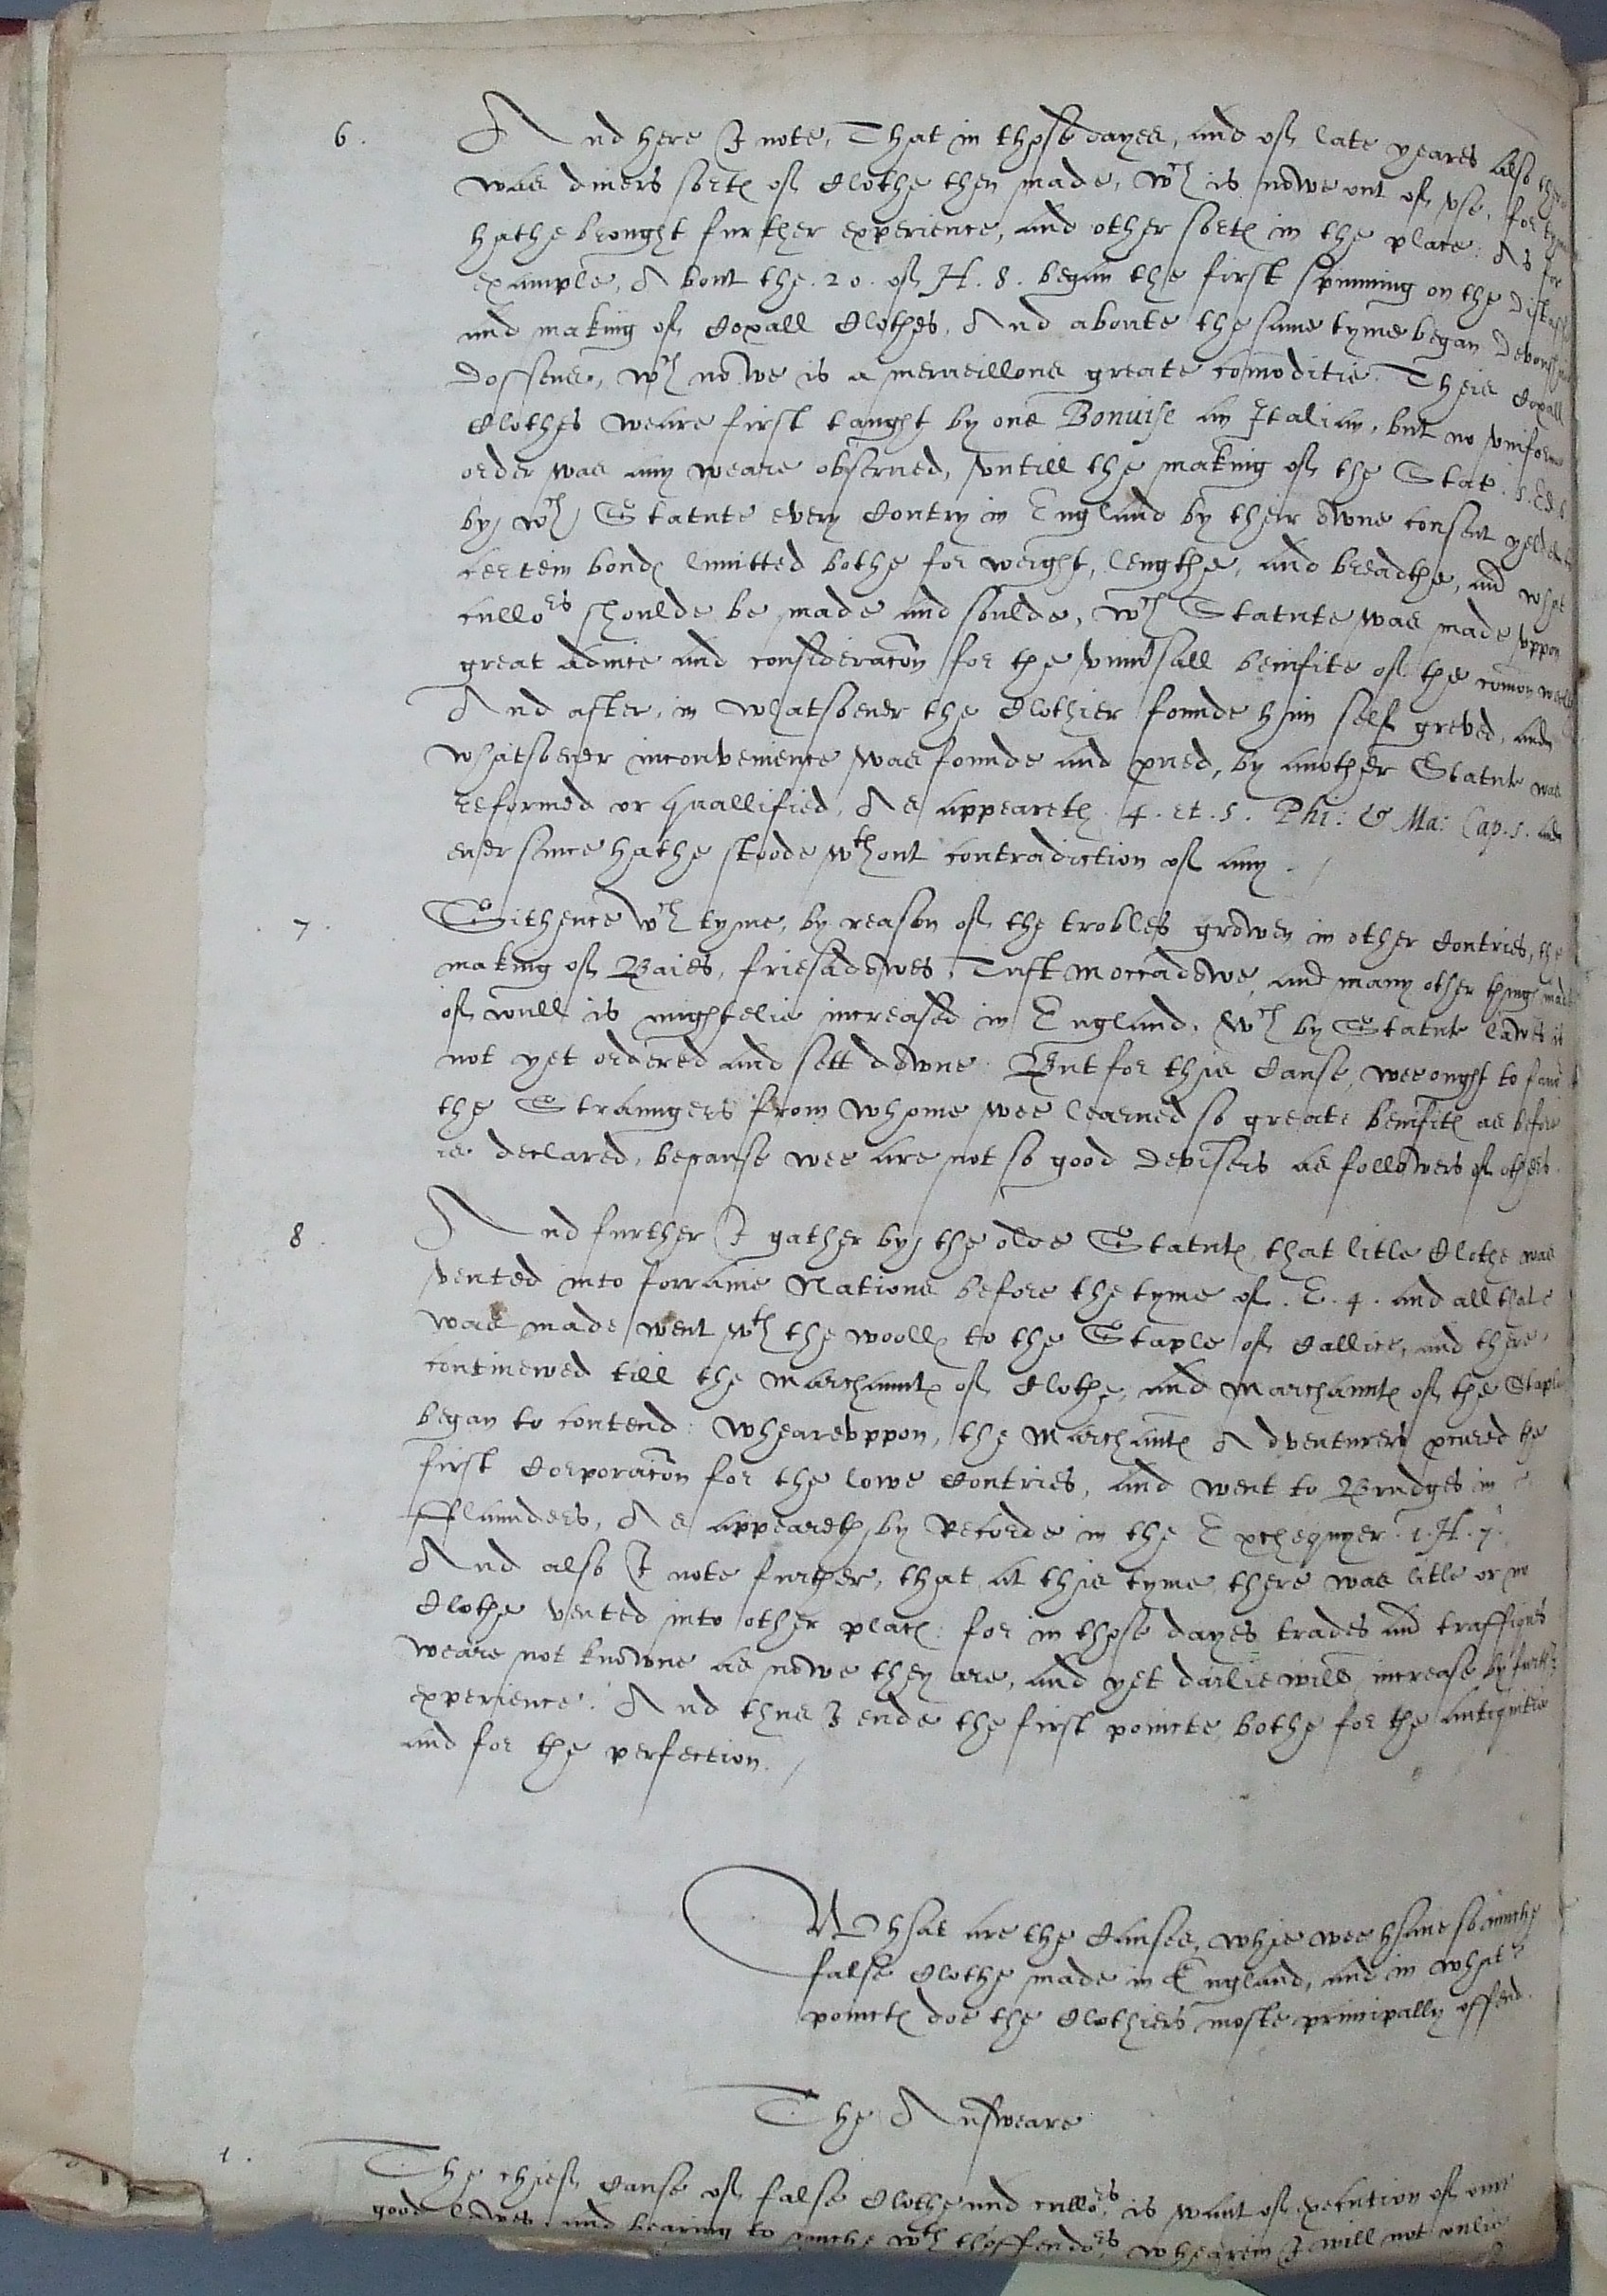 6. And here I note, That in those dayes, and of late yeares also ther
was diuers sortes of Clothe then made, wch is nowe out of vse, for tyme
hathe brought further experience, and other sortes in the place: As for
example, About the .20. of H. 8. began the first spinning on the Distaff
and making of Coxall Clothes, And aboute the same tyme began Devonshire
Dossens, wch nowe is a merveillous greate comoditie. Theis Coxall
Clothes weare first taught by one Bonuise an Italian, but no vniforme
order was any weare obserued, vntill the making of the Stat. 5. Ed. 6
by wch Statute every Contry in England by their owne consent yelded to
certein bondes limitted bothe for weight, lengthe, and breadthe, and what
cullors shoulde be made and soulde, wch Statute was made vppon
great aduice and consideracõn for the vniuersall benifite of the comon wealth
And after, in whatsoeuer the Clothier founde him self greved, and
whatsoeuer inconvenience was founde and proued, by another Statute was
reformed or quallified, As appeareth .4. et .5. Phi: & Ma: Cap. 5. and
euer since hathe stoode wthout contradiction of any.
7. Sithence wch tyme, by reason of the trobles growen in other Contries, the
making of Baies, friesadowes, Tuft moccadowe, and many other thinges made
of wull is mightelie increased in England, wch by Statute lawes is
not yet ordered and sett downe. But for this Cause, wee ought to
the Straungers from whome wee learned so greate benifites as before
is declared, because wee are not so good devisers as followers of others.
8. And further I gather by the olde Statutes, that litle Clothe was
vented into forraine Nations before the tyme of .E. 4. and all that
was made went wth the woolles to the Staple of Callice, and there
continewed till the Marchauntes of Clothe, and Marchauntes of the Staple
began to contend: Whearevppon, the Marchantes Adventurers procured the
first Corporacõn for the lowe Contries, and went to Brudges in
fflaunders, As appeareth by Recorde in the Exchequyer .1. H. 7.
And also I note further, that at this tyme there was litle or no
Clothe vented into other places: for in those dayes trades and traffiques
weare not knowne as nowe they are, and yet dailie will increase by further
experience. And thus I ende the first poincte, bothe for the Antiquitie
and for the perfection.
What are the Causes, whie wee haue so muche
false Clothe made in England, and in what
poinctes doe the Clothiers moste principally offend.
The Answeare
1. The chief Cause of false Clothe and cullors, is want of execution of our
good lawes, and bearing to muche wth thoffendors, whearein I will not onlie